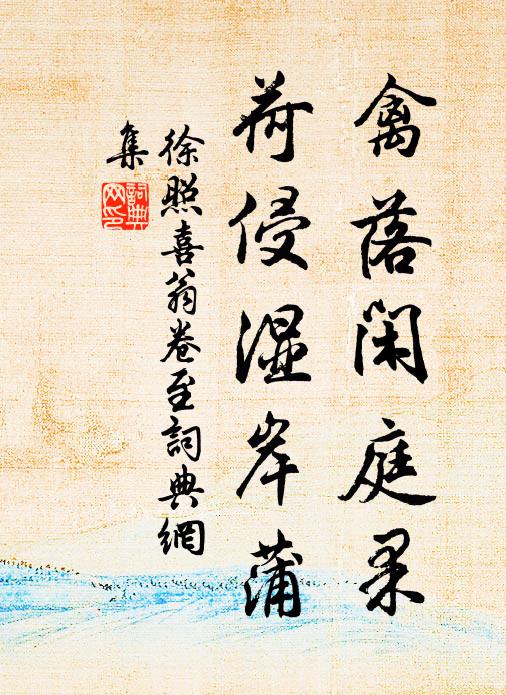 禽落閑庭果
荷侵湿岸蒲
徐照喜翁卷至詞典網
集
詞典網印